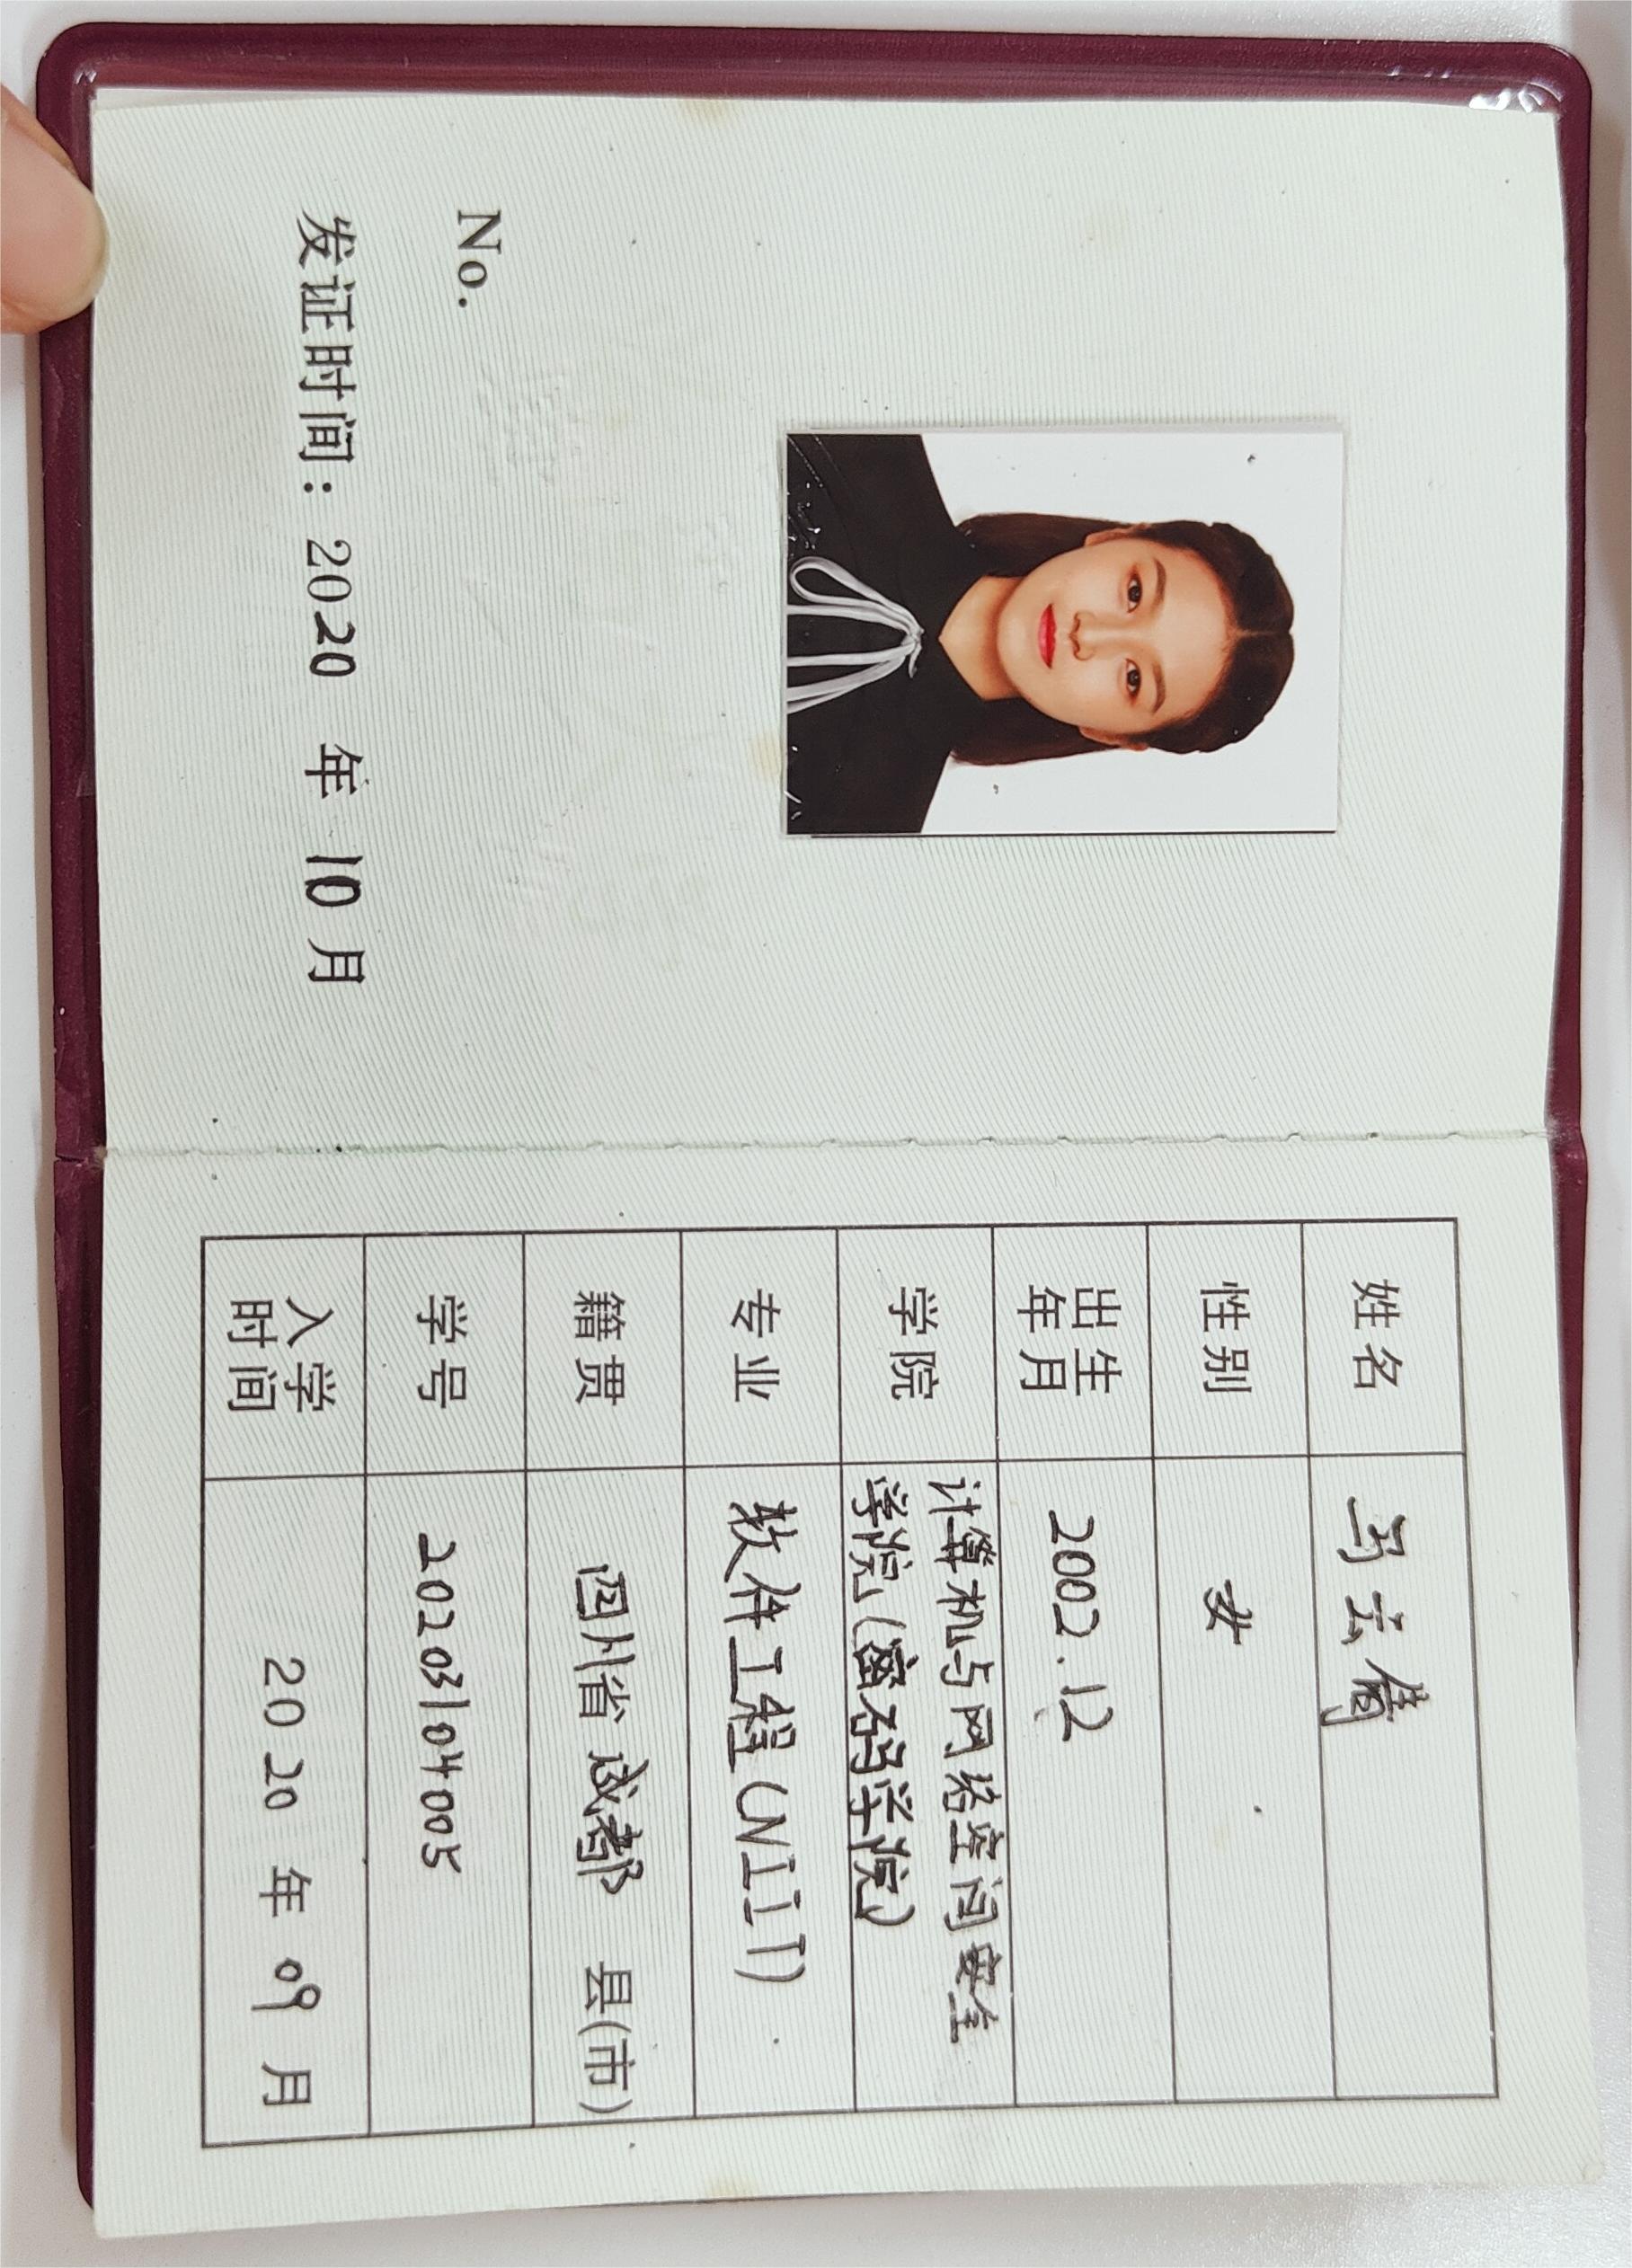 No.
发证时间：2020 年 10 月
姓名 马云倩
性别 女
出生年月 2002.12
学院 计算机与网络空间安全
学院（密码学院）
专业 软件工程（NIIT）
籍贯 四川省 成都 县(市)
学号 202031040005
入学时间 2020 年 09 月